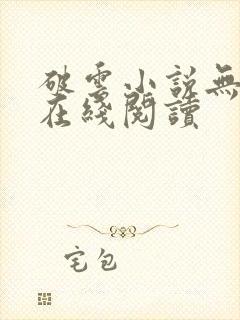 破雲小說無
在綫閱讀
宅包